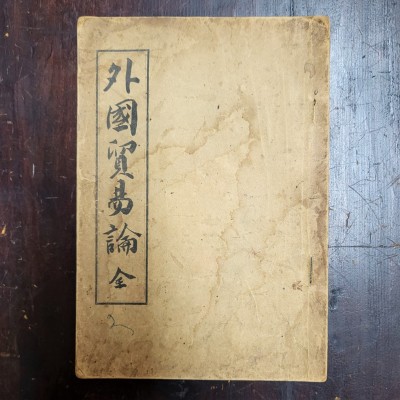 外國貿易論 全